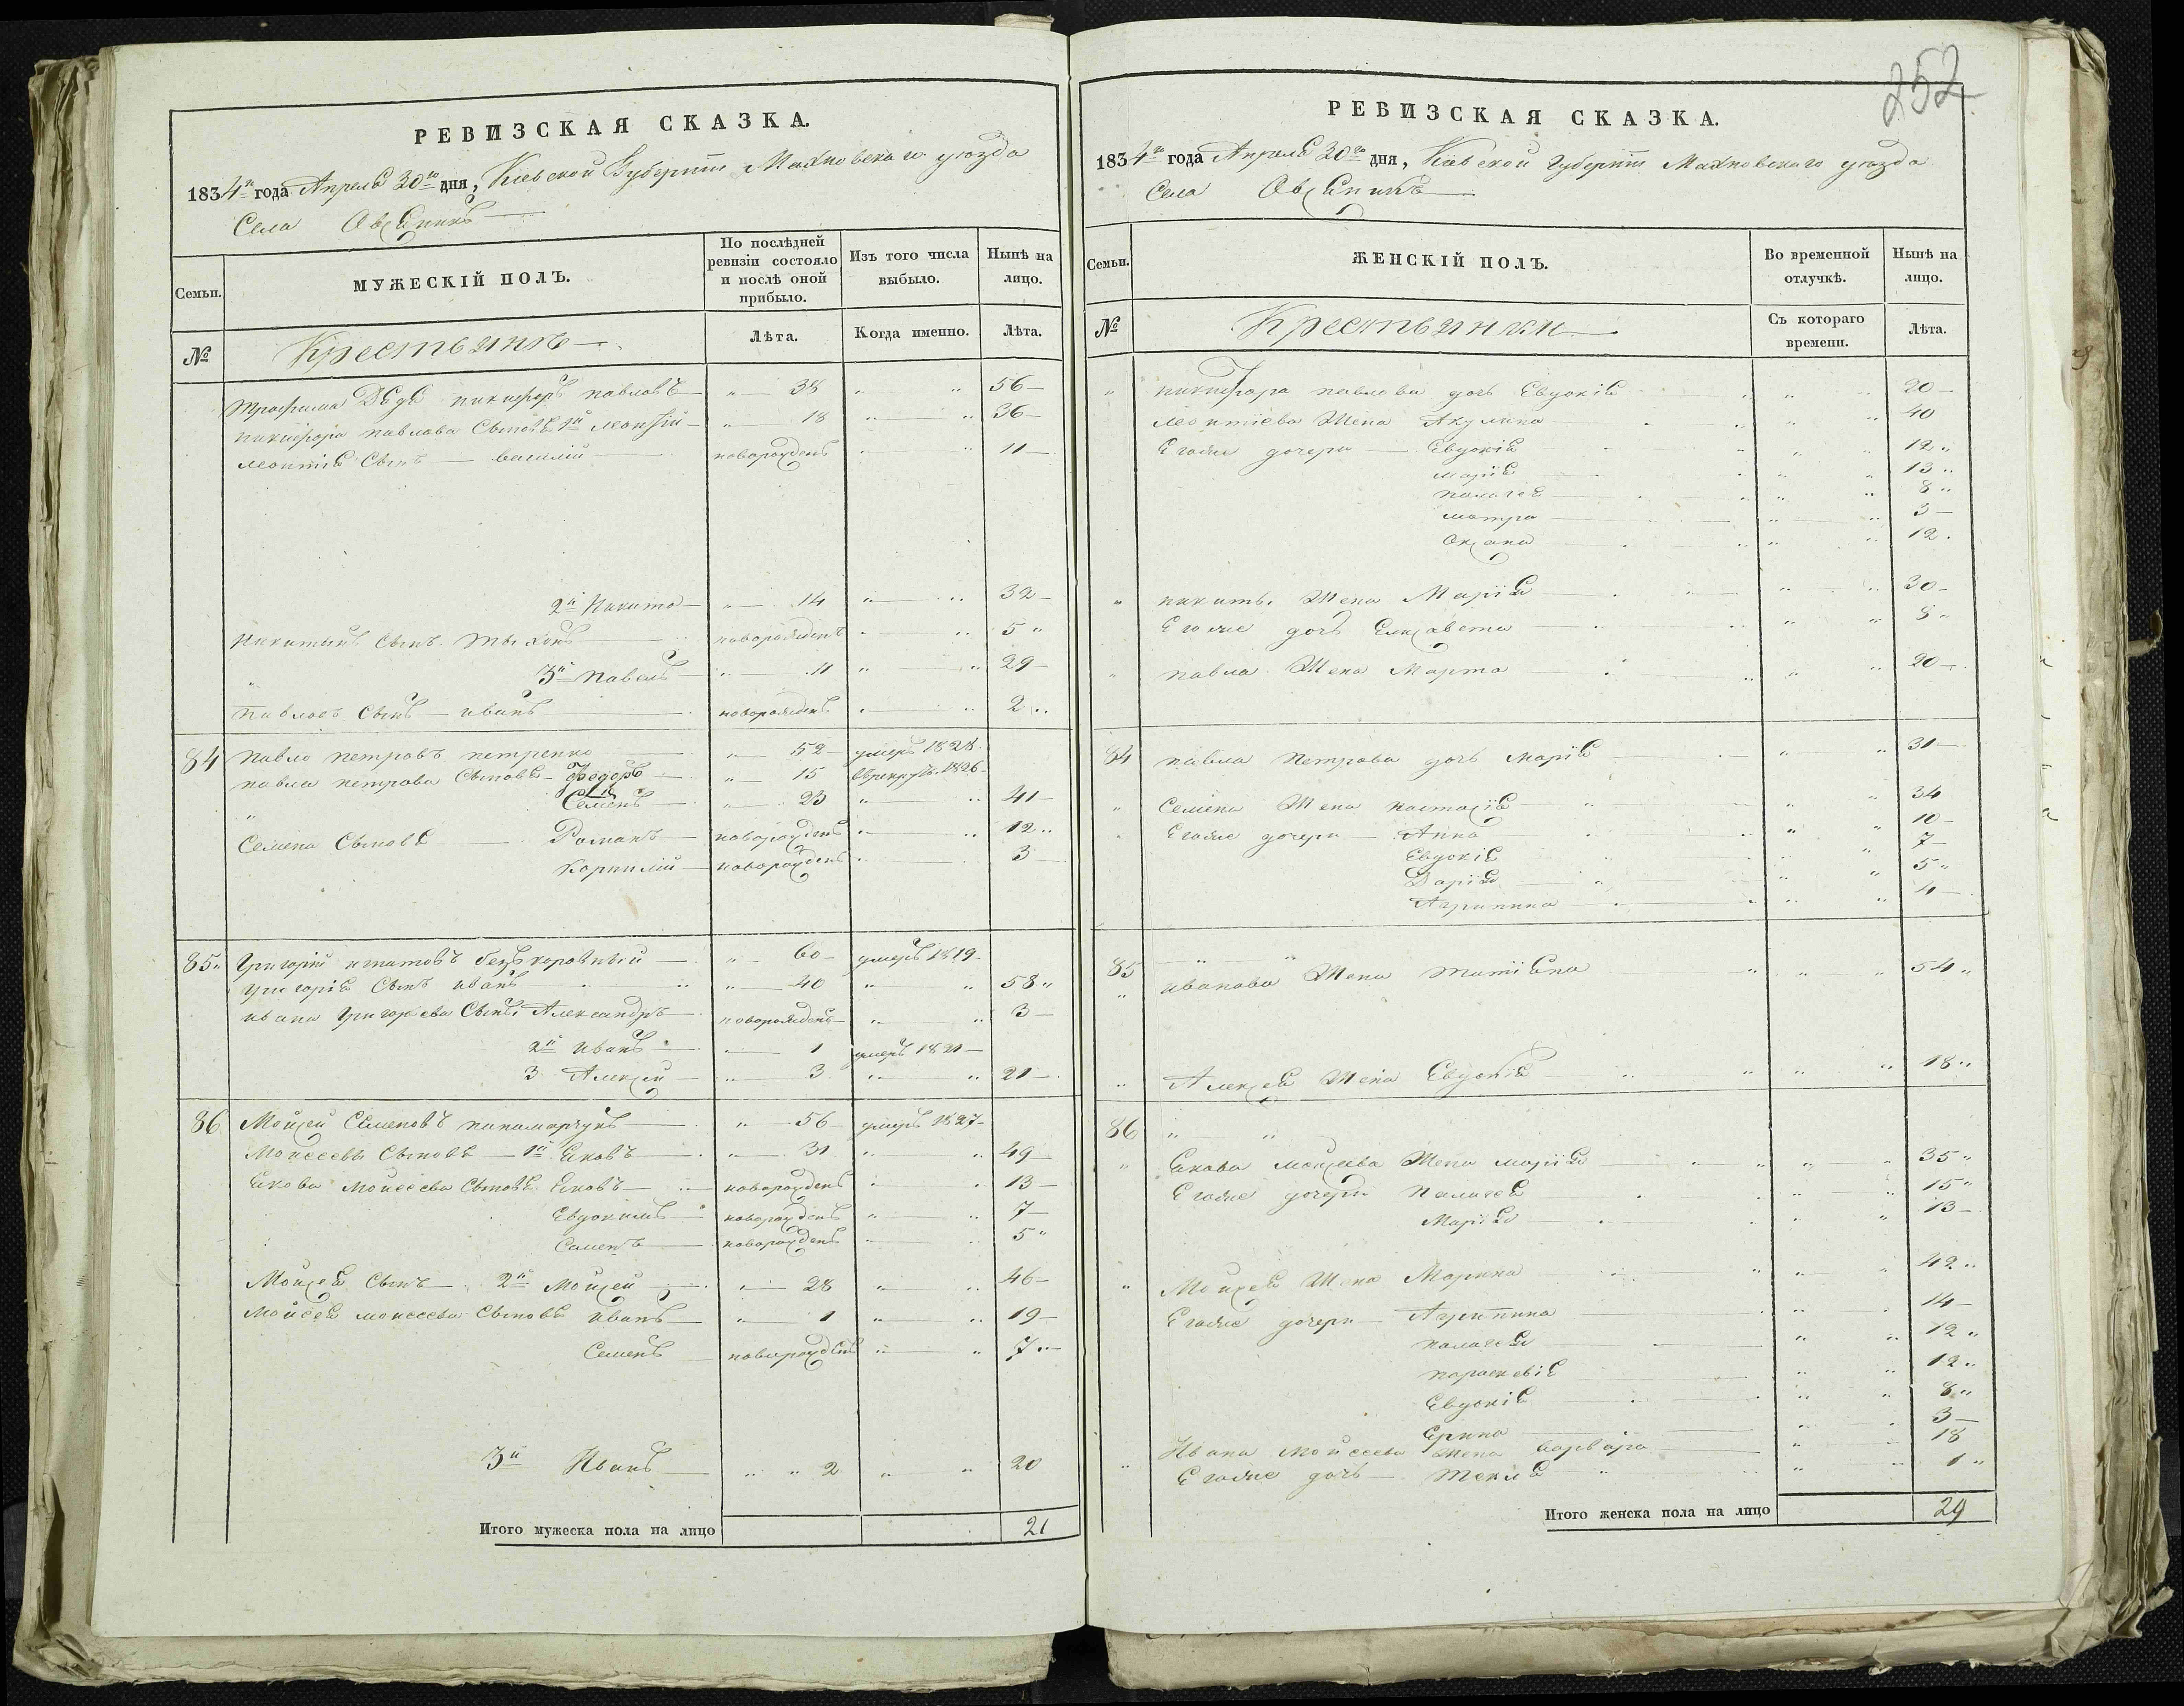 252
РЕВИЗСКАЯ СКАЗКА.
1834го года Апреля 30го дня, Киевской Губернии Махновскаго уезда
Села Овсяникъ
Семьи. МУЖЕСКІЙ ПОЛЪ. По послѣдней ревизіи состояло и послѣ оной прибыло. Изъ того числа выбыло. Нынѣ на лицо.
№ Крестьянъ Лѣта. Когда именно. Лѣта.
Трофима Дядя никифоръ павловъ — " 38 " " 56
никифора павлова Сыновя 1й леонтій " 18 " " 36
леонтія Сынъ василій новорожденъ " " 11
2й Никита " 14 " " 32
Никитинъ Сынъ новорожденъ " " 5
" 3й павелъ " 11 " " 29
Павловъ Сынъ иванъ новорожденъ " " 2
84 павло петровъ петренко " 52 умеръ 1828
павла петрова Сыновя Федоръ " 15 врекрутъ. 1826
" Семенъ " 23 " " 41
Семена Сыновя Романъ новорожденъ " " 12
Корнилій новорожденъ " 3
85 Григорій игнатовъ безкоровный " 60 умеръ 1819
Григорія Сынъ иванъ " 40 " " 58
ивана Григорьева Сынъ Александръ новорожденъ " " 3
2й иванъ " 1 умеръ 1821
3 Алексей " 3 " " 21
86 Мойсей Семеновъ паномарчукъ " 56 умеръ 1827
Моисеевы Сыновя 1й Яковъ " 31 " " 49
Якова Моисеева Сыновя Яковъ новорожденъ " 13
Евдокимъ новорожденъ " " 7
Семенъ новорожденъ " " 5
Мойсея Сынъ 2й Мойсей " 28 " " 46
Мойсея моисеева Сыновя иванъ " 1 " " 19
Семенъ новорожденъ " " 7
3й Иванъ " " 2 " " 20
Итого мужеска пола на лицо 21
РЕВИЗСКАЯ СКАЗКА.
1834го года Апреля 30го дня, Киевской Губернии Махновскаго уезда
Села Овсяникъ
Семьи. ЖЕНСКІЙ ПОЛЪ. Во временной отлучкѣ. Нынѣ на лицо.
№ Крестьянки Съ котораго времени. Лѣта.
" никифора павлова дочь Евдокія " " 20
леонтіева Жена Акулина " " 40
Егоже дочери Евдокія " " 12
марія " " 13
палагея " " 8
мотря " " 3
Оксана " " 12
" никиты Жена Марія " " 30
Егоже дочь Елисавета " " 8
" павла Жена Марта " " 20
84 павла Петрова дочь Марія " " 31
" Семена Жена настасія " " 34
" Егоже дочери Анна " " 10
Евдокія " 7
Дарія " " 5
Агрипина " " 4
85 " "
" иванова Жена Татіяна " " 54
" Алексея Жена Евдокія " " 18
86 " "
" Якова мойсеева Жена марія " " 35
Егоже дочери Палагея " " 15
Марія " " 13
" Мойсея Жена Марина " " 42
Егоже дочери Агрипина " " 14
палагея " " 12
параскевія " " 12
Евдокія " " 8
Ерина " " 3
" Ивана мойсеева Жена варвара " " 18
Егоже дочь Текля " " 1
Итого женска пола на лицо 29